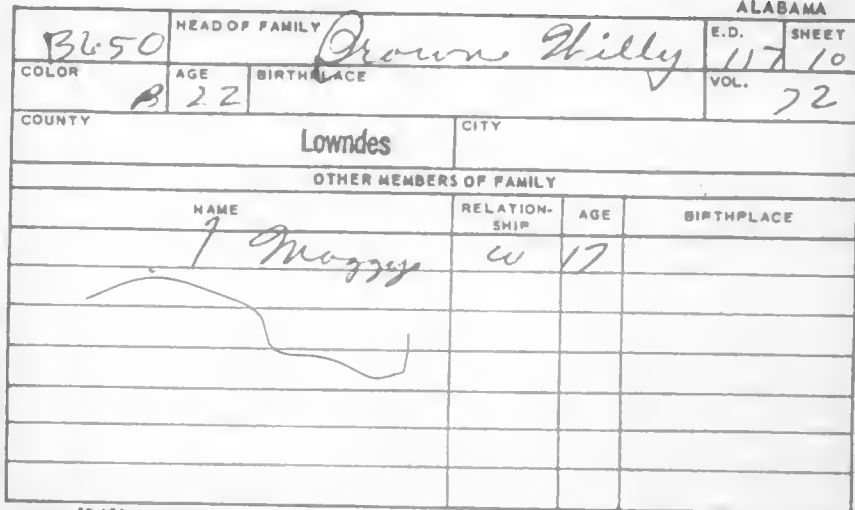 ALABAMA
B650 HEAD OF FAMILY Brown Willy E.D. 117 SHEET 10
COLOR B AGE 22 BIRTHPLACE VOL. 72
COUNTY Lowndes CITY
OTHER MEMBERS OF FAMILY
NAME RELATION-SHIP AGE BIRTHPLACE
Maggye W 17